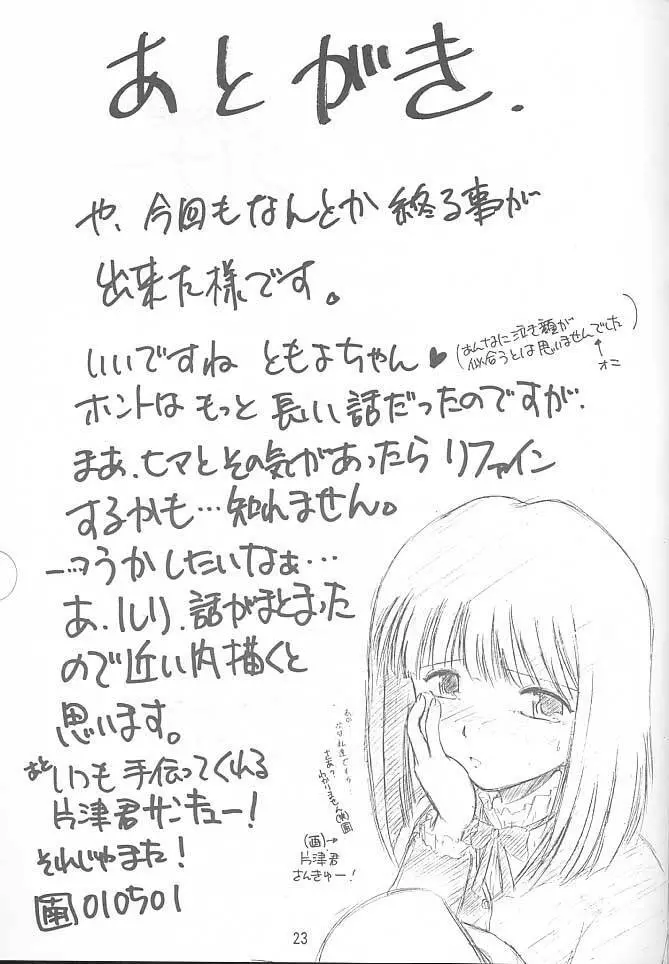 あとがき.
や、今回もなんとか終る事が
出来た様です。
いいですね ともよちゃん♥
(あんなに泣き顔が
似合うとは思いませんでした)
↑
オニ
ホントは もっと 長い話だったのですが.
まあ.ヒマとその気があったら リファイン
するかも…知れません。
うかしたいなぁ…
あ. 話がまとまった
ので近い内描くと
思います。
あと いつも 手伝ってくれる
片津君サンキュー!
それじゃまた!
010501
(画)→
片津君
さんきゅー!
23